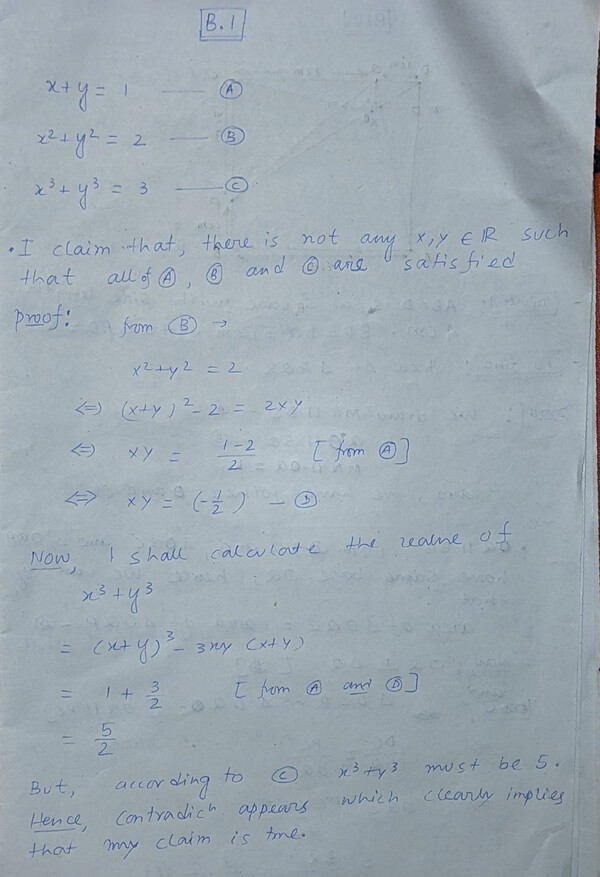 B.1
x+y = 1 —— Ⓐ
x² + y² = 2 —— Ⓑ
x³ + y³ = 3 —— Ⓒ
• I claim that, there is not any x, y ∈ ℝ such
that all of Ⓐ, Ⓑ and Ⓒ are satisfied
Proof: from Ⓑ →
x² + y² = 2
⇔ (x+y)² - 2 = 2xy
⇔ xy = (1-2)/2 [from Ⓐ]
⇔ xy = (-1/2) — Ⓓ
Now, I shall calculate the value of
x³ + y³
= (x+y)³ - 3xy (x+y)
= 1 + 3/2 [from Ⓐ and Ⓓ]
= 5/2
But, according to Ⓒ x³+y³ must be 5.
Hence, contradicn appears which clearly implies
that my claim is true.